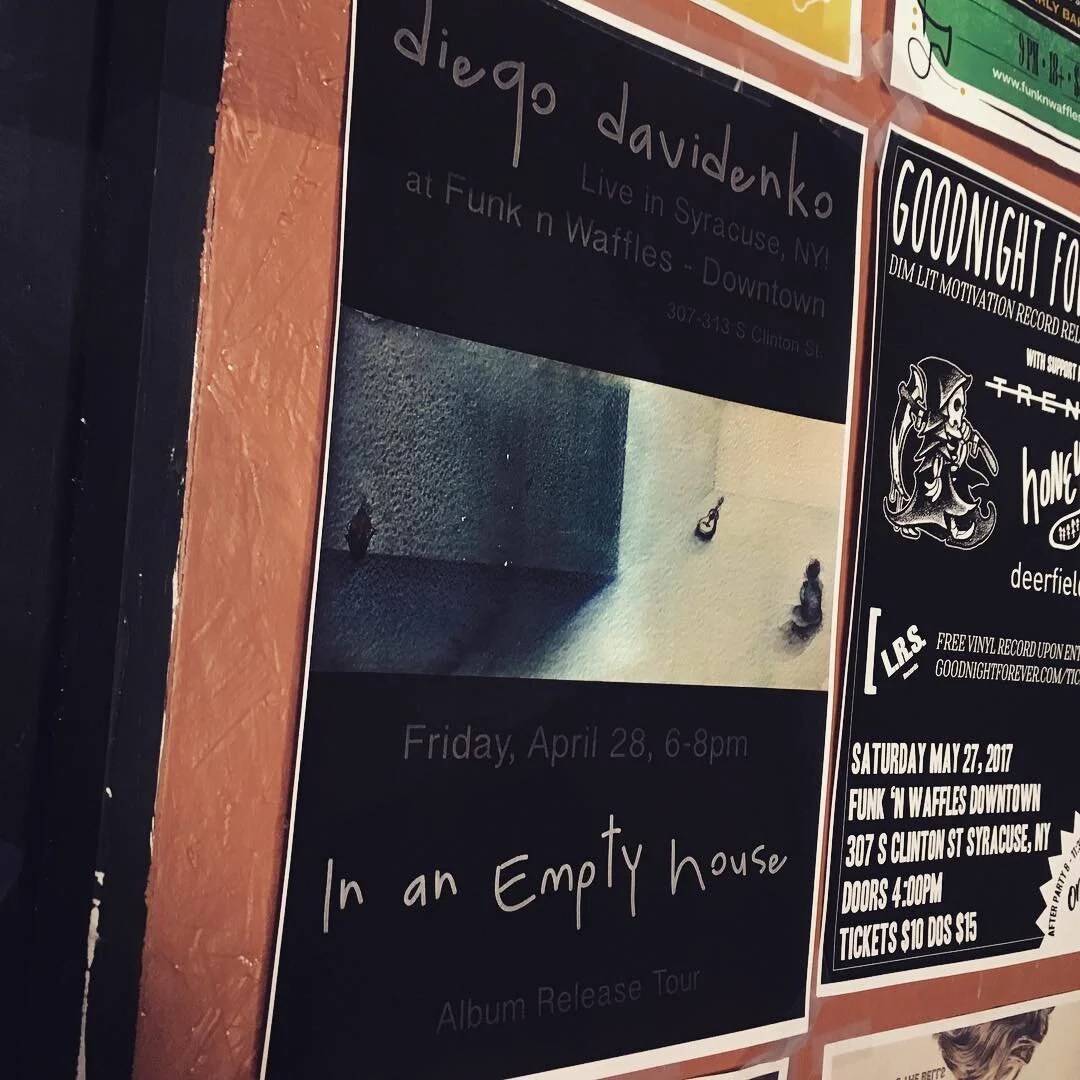 diego davidenko
Live in Syracuse, NY!
at Funk n Waffles - Downtown
307-313 S Clinton St.
Friday, April 28, 6-8pm
In an Empty house
Album Release Tour
9 PM • 18+ •
www.funknwaffles
GOODNIGHT FO
DIM LIT MOTIVATION RECORD REL
WITH SUPPORT
TREN
honey
deerfiel
L.R.S.
FREE VINYL RECORD UPON ENT
GOODNIGHTFOREVER.COM/TIC
SATURDAY MAY 27, 2017
FUNK 'N WAFFLES DOWNTOWN
307 S CLINTON ST SYRACUSE, NY
DOORS 4:00PM
TICKETS $10 DOS $15
AFTER PARTY 8 - 11:3